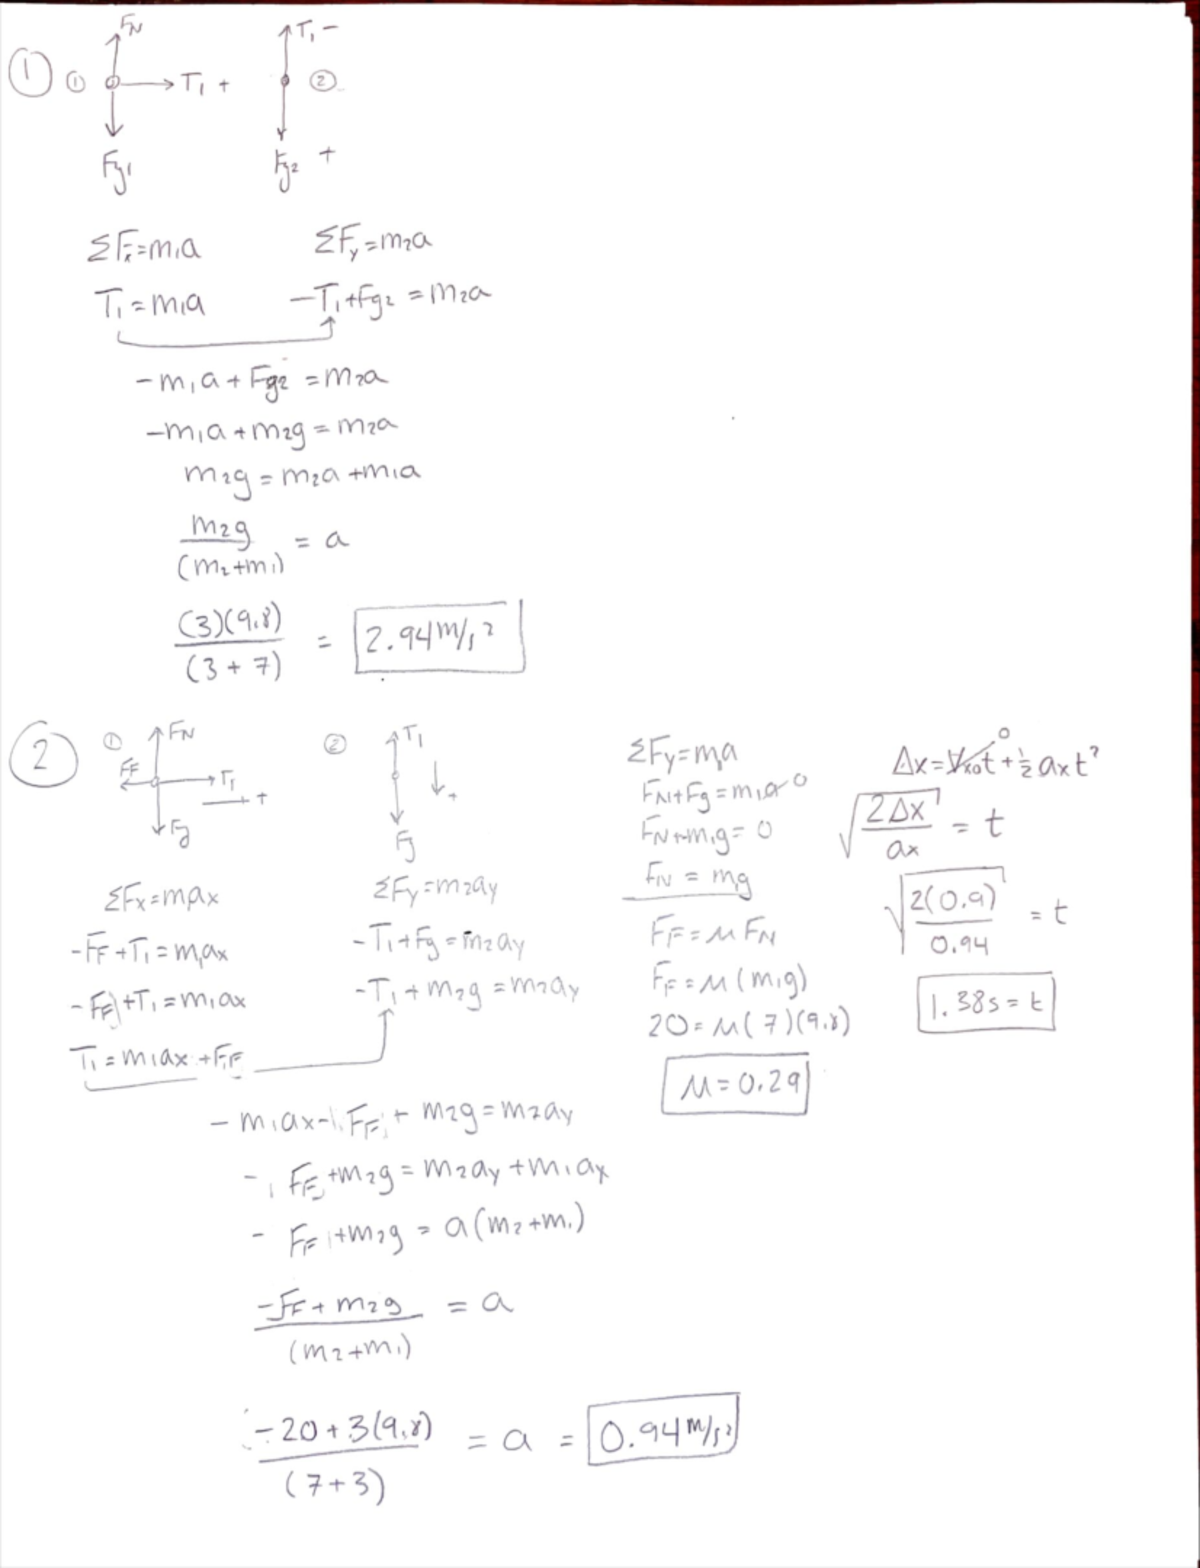 ① ① F_N T₁ + T₁ − ②
Fg₁ Fg₂ +
ΣFₓ=m₁a ΣF_y=m₂a
T₁=m₁a −T₁+Fg₂=m₂a
−m₁a+Fg₂=m₂a
−m₁a+m₂g=m₂a
m₂g=m₂a+m₁a
m₂g/(m₂+m₁) = a
(3)(9.8)/(3+7) = 2.94 m/s²
② ① F_N F_F T₁ + Fg
② T₁ + Fg
ΣFₓ=m₁aₓ
−F_F+T₁=m₁aₓ
−F_F+T₁=m₁aₓ
T₁=m₁aₓ+F_F
ΣF_y=m₂a_y
−T₁+Fg=m₂a_y
−T₁+m₂g=m₂a_y
−m₁aₓ−F_F+m₂g=m₂a_y
−F_F+m₂g=m₂a_y+m₁aₓ
−F_F+m₂g=a(m₂+m₁)
(−F_F+m₂g)/(m₂+m₁) = a
(−20+3(9.8))/(7+3) = a = 0.94 m/s²
ΣF_y=m₁a
F_N+Fg=m₁a 0
F_N−m₁g=0
F_N=m₁g
F_F=μF_N
F_F=μ(m₁g)
20=μ(7)(9.8)
μ=0.29
Δx=Vₓ₀t+½aₓt² 0
√(2Δx/aₓ) = t
√(2(0.9)/0.94) = t
1.38s=t